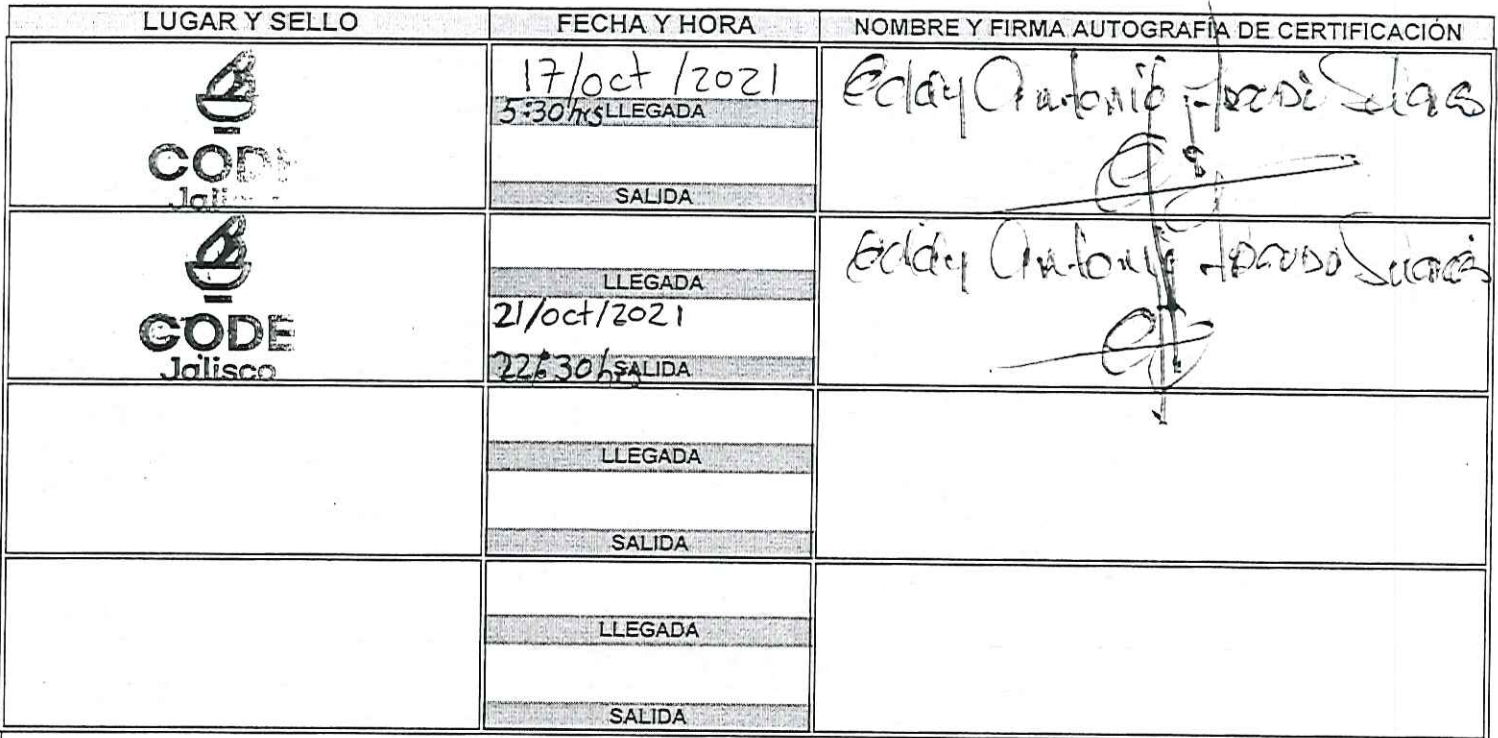 LUGAR Y SELLO
FECHA Y HORA
NOMBRE Y FIRMA AUTOGRAFÍA DE CERTIFICACIÓN
CODE
Jalisco
17/oct/2021
5:30 hrs LLEGADA
SALIDA
Eddy Antonio
CODE
Jalisco
LLEGADA
21/oct/2021
22:30 hrs SALIDA
Eddy Antonio
LLEGADA
SALIDA
LLEGADA
SALIDA